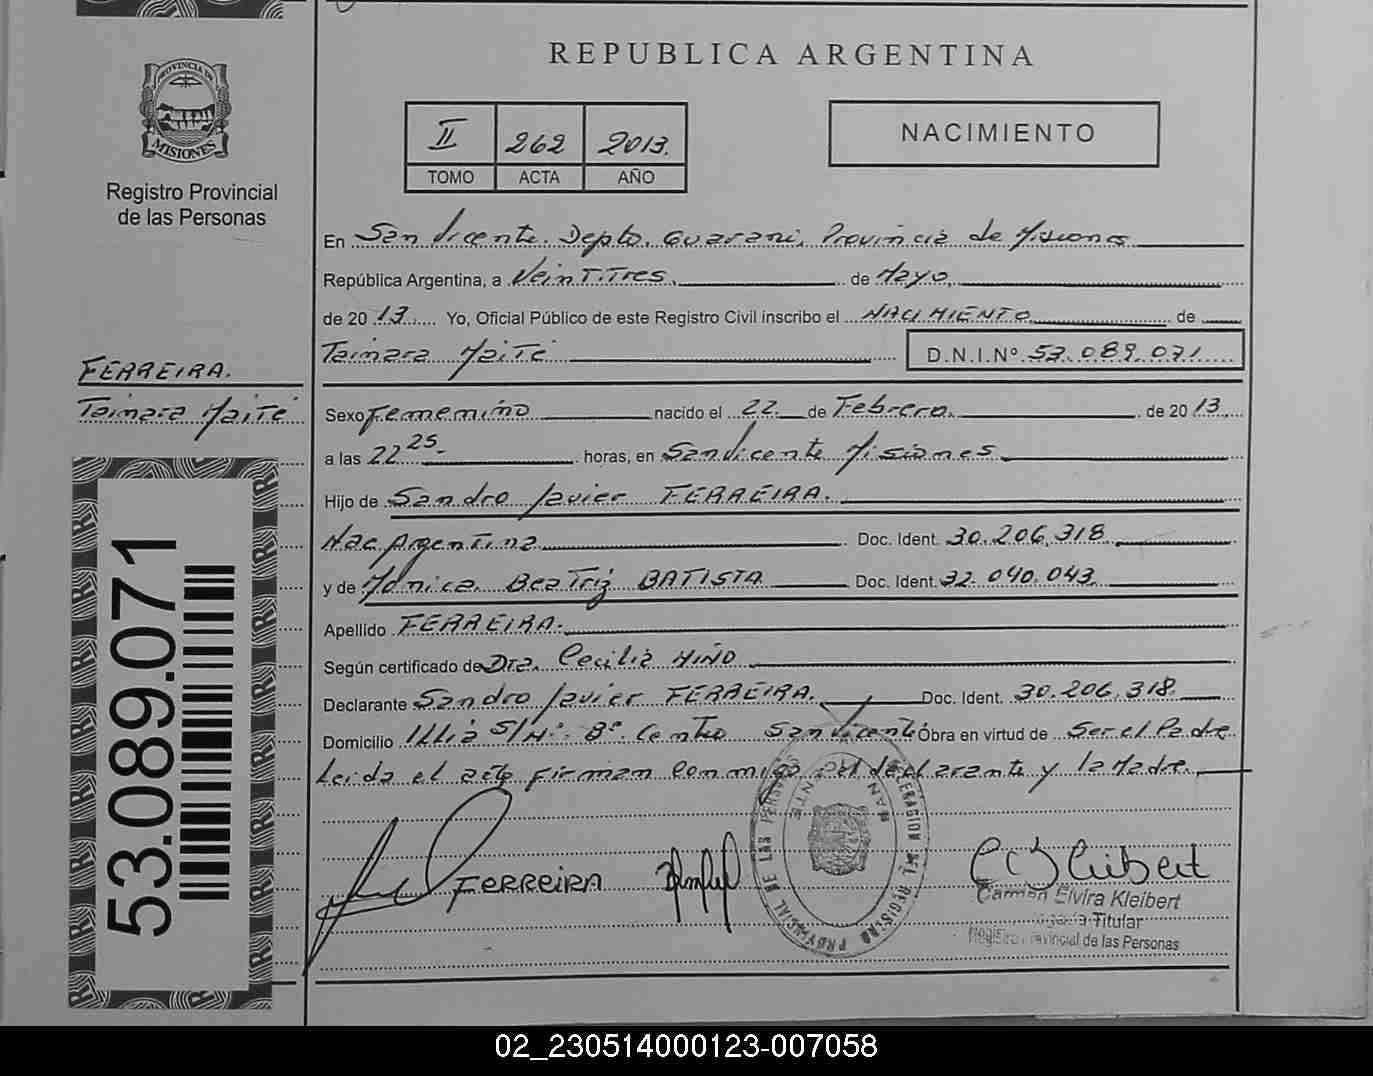 REPUBLICA ARGENTINA
PROVINCIA DE
MISIONES
Registro Provincial
de las Personas
II 262 2013.
TOMO ACTA AÑO
NACIMIENTO
En San Vicente. Depto. Guarani, Provincia de Misiones
República Argentina, a Veintitres, de Mayo,
de 20 13 Yo, Oficial Público de este Registro Civil inscribo el NACIMIENTO de
Tainara Maité D.N.I.Nº 53.089.071
FERREIRA.
Tainara Maité
Sexo Femenino nacido el 22 de Febrero. de 20 13
a las 22 25 horas, en San Vicente Misiones
Hijo de Sandro Javier FERREIRA.
Nac Argentina Doc. Ident. 30.206.318
y de Monica Beatriz BATISTA Doc. Ident. 32.040.043
Apellido FERREIRA.
Según certificado de Dra. Cecilia MIÑO
Declarante Sandro Javier FERREIRA. Doc. Ident. 30.206.318
Domicilio Illia S/Nº Bº. Centro San Vicente Obra en virtud de Ser el Padre
Leida el acta firman conmigo el declarante y la Madre.
53.089.071
FERREIRA
Carmen Elvira Kleibert
Titular
Provincial de las Personas
02_230514000123-007058